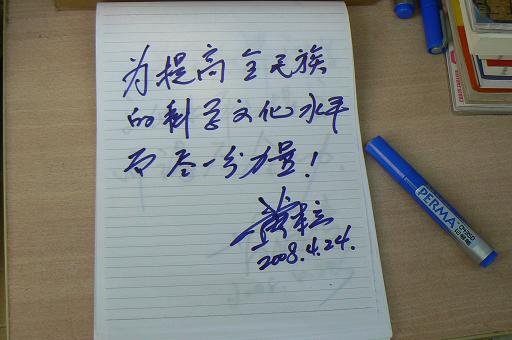 为提高全民族
的科学文化水平
而尽一分力量！
2008.4.24.
PERMA